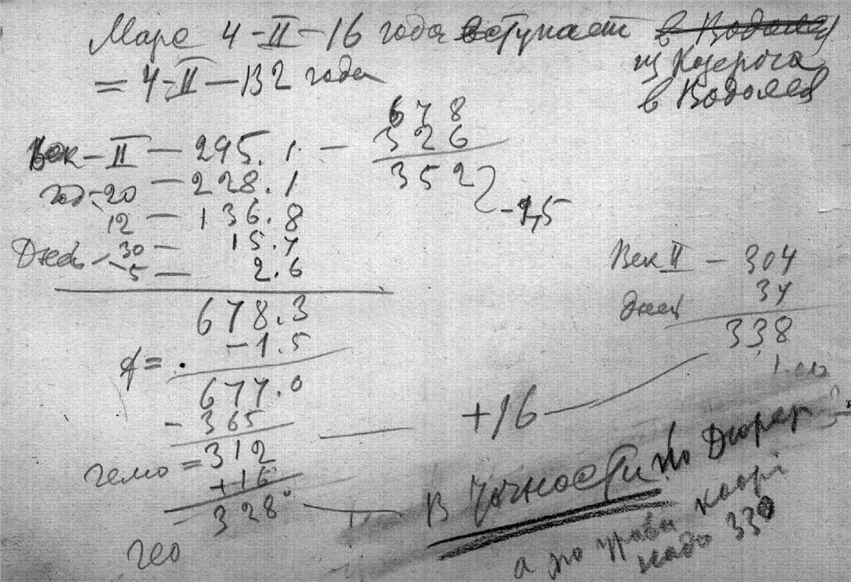 Марс 4-II-16 года вступает в Водолей
из Козерога
в Водолея
= 4-II-132 года
Век - II - 295.1 - 678
326
352
-1,5
год - 20 - 228.1
12 - 136.8
Дней - 30 - 15.7
-5 - 2.6
678.3
-1.5
677.0
- 365
гелио = 312
+16
328°
гео
Век II - 304
дней 34
338
+16
В точности по Дюрер
а по грави
надо 330